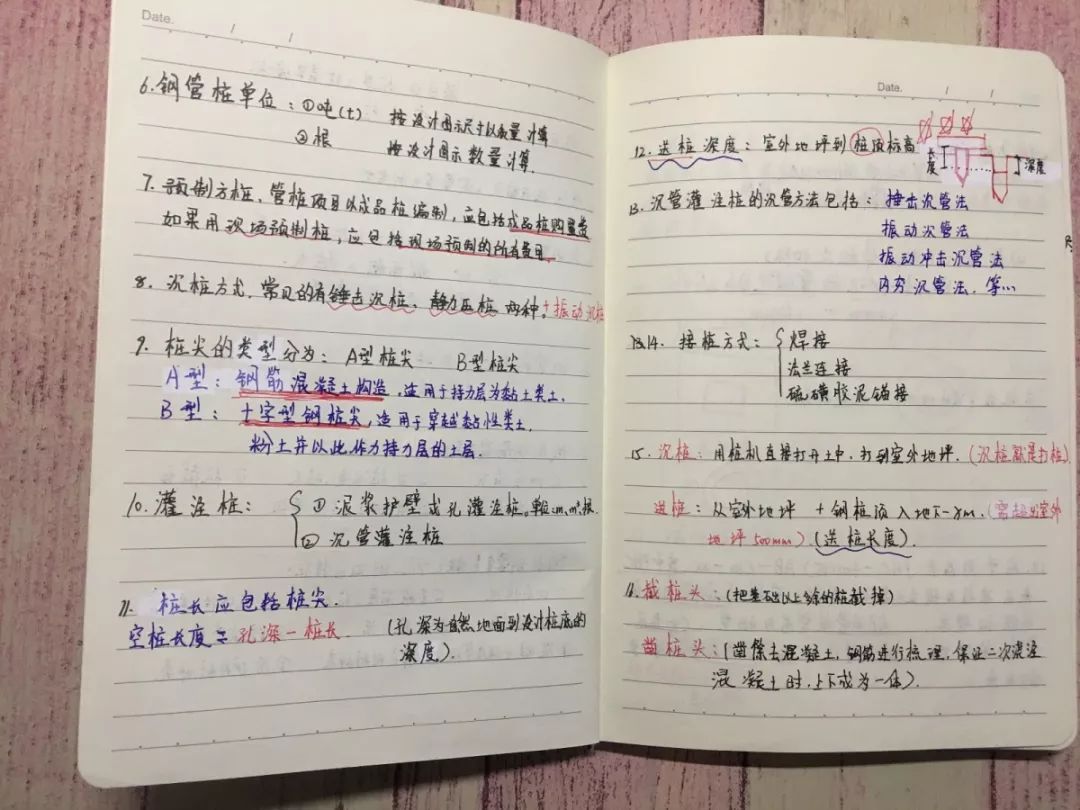 Date. / /
6.钢管桩单位：①吨(t) 按设计图示尺寸以质量计算
②根 按设计图示数量计算.
7. 预制方桩、管桩项目以成品桩编制，应包括成品桩购置费
如果用现场预制桩，应包括现场预制的所有费用.
8. 沉桩方式，常见的有锤击沉桩、静力压桩 两种.+振动沉桩
9. 桩尖的类型分为：A型桩尖 B型桩尖
A型：钢筋混凝土构造，适用于持力层为黏土类土.
B型：十字型钢桩尖，适用于穿越黏性类土
粉土并以此作力持力层的土层.
10.灌注桩：① 泥浆护壁成孔灌注桩。单位:m、m³、根.
② 沉管灌注桩
11. 桩长应包括桩尖.
空桩长度=孔深-桩长 (孔深为自然地面到设计桩底的
深度).
Date. / /
12.送桩深度：室外地坪到桩顶标高
度 深度
13.沉管灌注桩的沉管方法包括：捶击沉管法
振动沉管法
振动冲击沉管法
内夯沉管法，等…
14. 接桩方式：焊接
法兰连接
硫磺胶泥锚接
15. 沉桩：用桩机直接打开土中，打到室外地坪.(沉桩就是打桩)
送桩：从室外地坪 + 钢桩 入地下-8m.(需超出室外
地坪500mm)(送桩长度).
截桩头：(把基础以上多余的桩截掉)
凿桩头：(凿除去混凝土，钢筋进行梳理，保证二次浇注
混凝土时，上下成为一体).